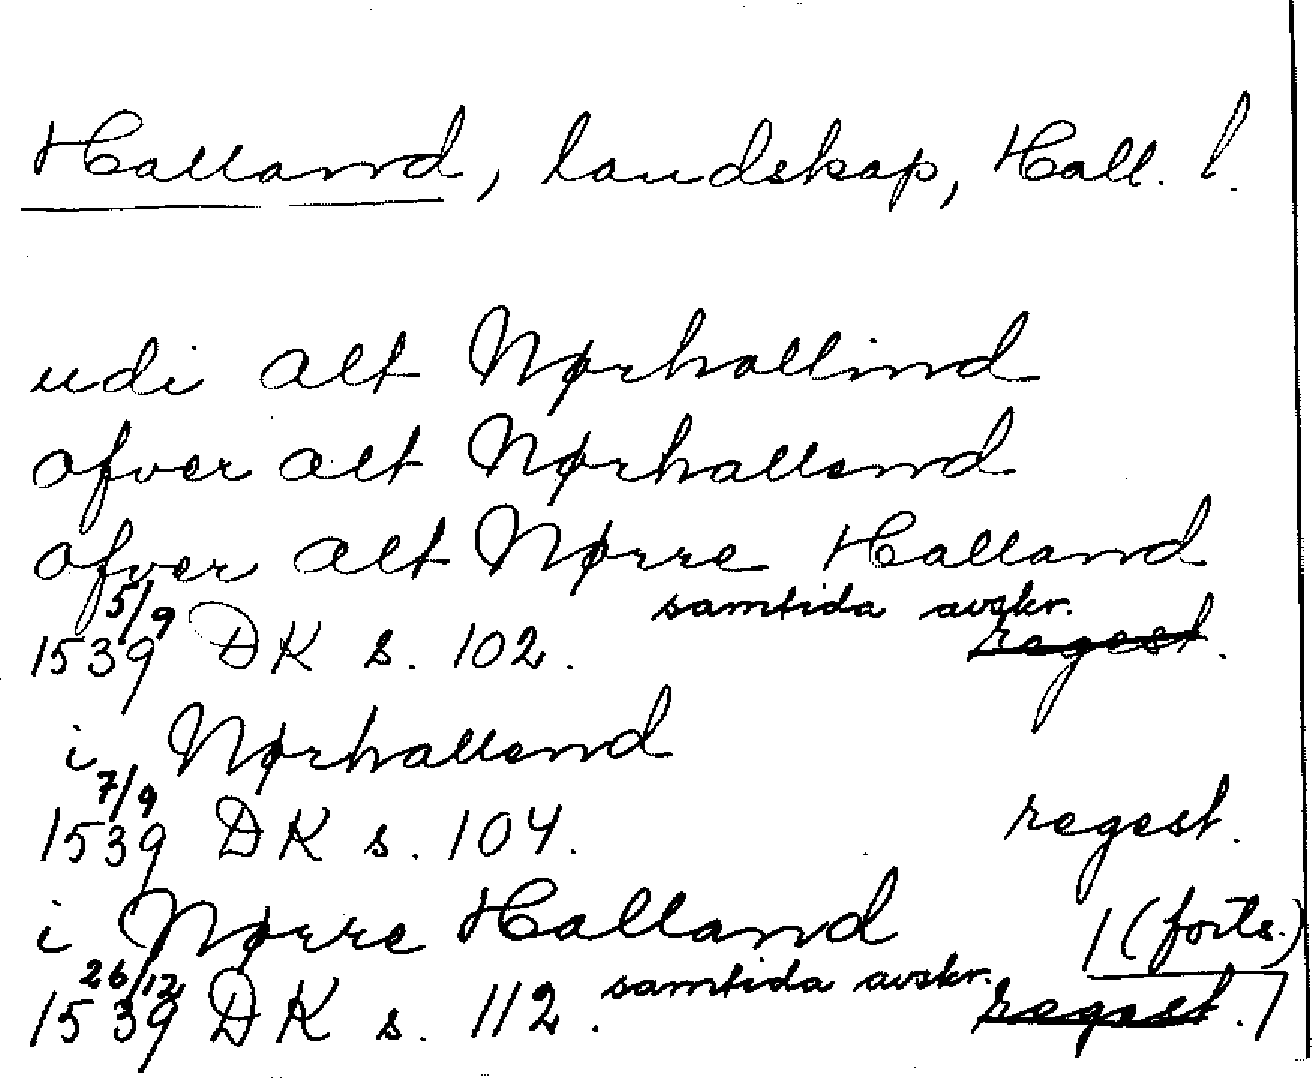 Halland, landskap, Hall. l.
udi alt Nørhallind
ofver alt Nørhallend
ofver alt Nørre Halland
5/9 samtida avskr.
1539 DK s. 102. regest.
i Nørhallend
7/9
1539 DK s. 104. regest.
i Nørre Halland 1 (forts.)
26/12 samtida avskr.
1539 DK s. 112. regest.